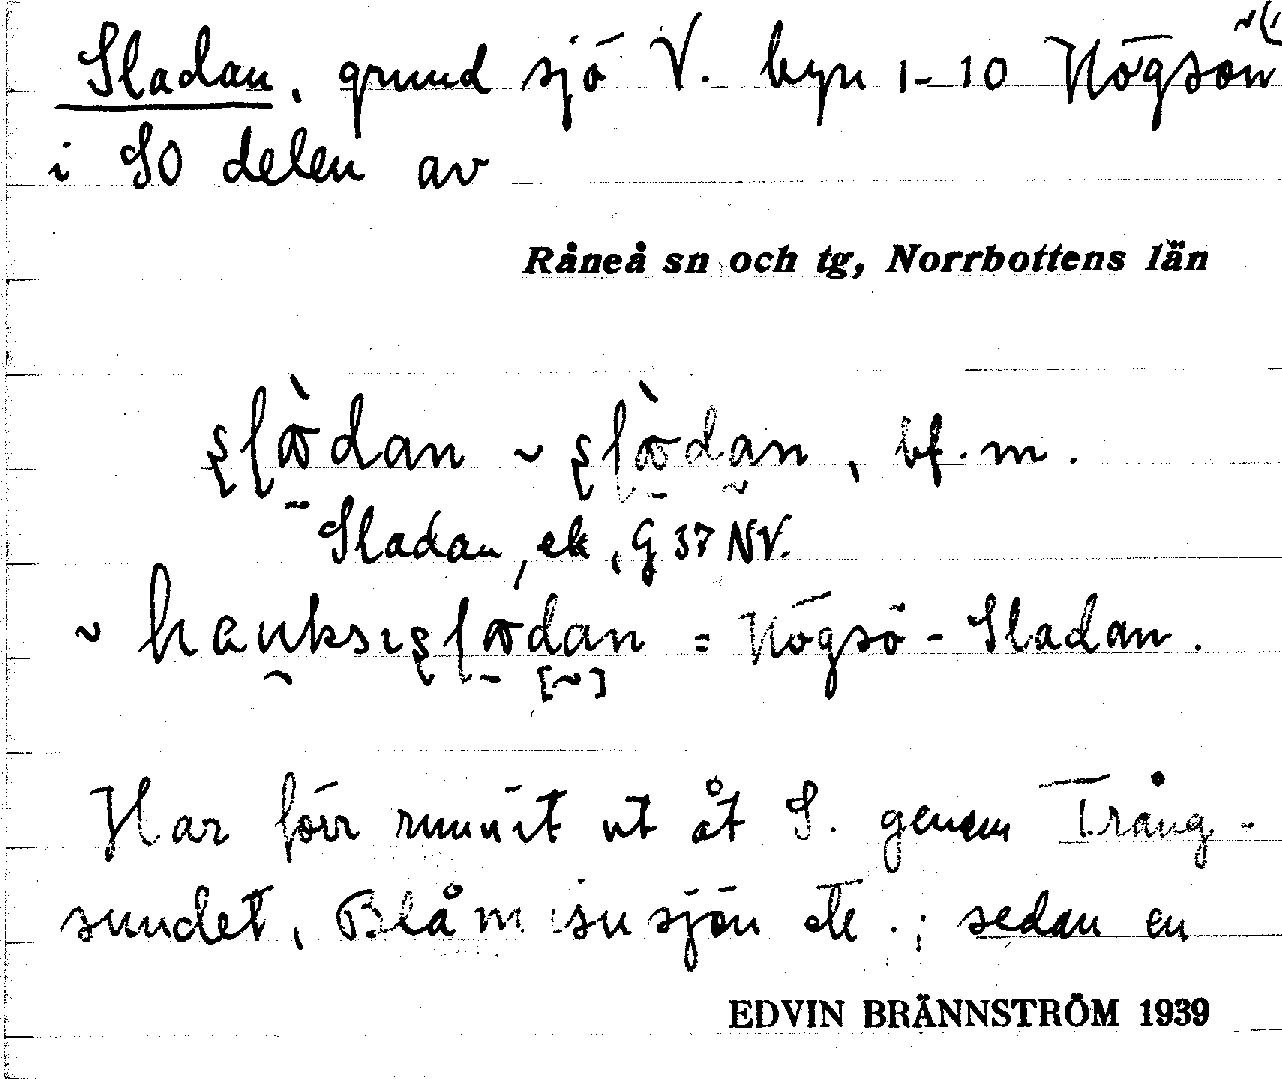 Sladan, grund sjö V. byn 1-10 Högsön
i SO delen av
Råneå sn och tg, Norrbottens län
bf. m.
Sladan, ek, G 37 NV.
= Högsö-Sladan.
Har förr runnit ut åt S. genom Trång-
sundet, sjön etc.; sedan en
EDVIN BRÄNNSTRÖM 1939